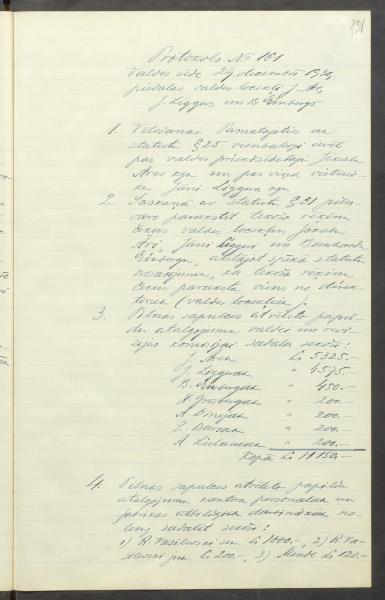 Protokols № 161
Valdes sēde 29. decembrī 1930,
piedalas valdes locekļi J. Ārs,
J. Liggers un B. Einbergs
1. Vēlēšanas. Pamatojoties uz
statutu § 25 vienbalsīgi ievēl
par valdes priekšsēdētāju Jēkabu
Āres kgu un par viņa vietnie-
ku Jāni Liggeru kgu
2. Saskaņā ar statutu § 21 piln-
varo parakstīt tekošu rēķinu
čekus valdes locekļus Jēkabu
Āri, Jāni Liggeri un Bernhardu
Einbergu, atstājot spēkā statutu
nosacījumu, ka tekošu rēķinu
čekus paraksta viens no direk-
toriem (valdes locekļiem).
3. Pilnas sapulces atvēlēto papil-
du atalgojumu valdei un revi-
zijas komisijai sadala sekoši:
J. Āram Ls 5325.—
J. Liggeram " 4575.—
B. Einbergam " 450.—
" 200.—
" 200.—
" 200.—
" 200.—
Kopā Ls 11150.—
4. Pilnas sapulces atvēlēto papildu
atalgojumu kantora personalam un
fabrikas atbildīgiem darbiniekiem no-
lemj sadalīt sekoši:
1) R. Vasiļevski sen. Ls 1000.—, 2) R. Va-
siļevski jun. Ls 200.—, 3) Ls 120.—